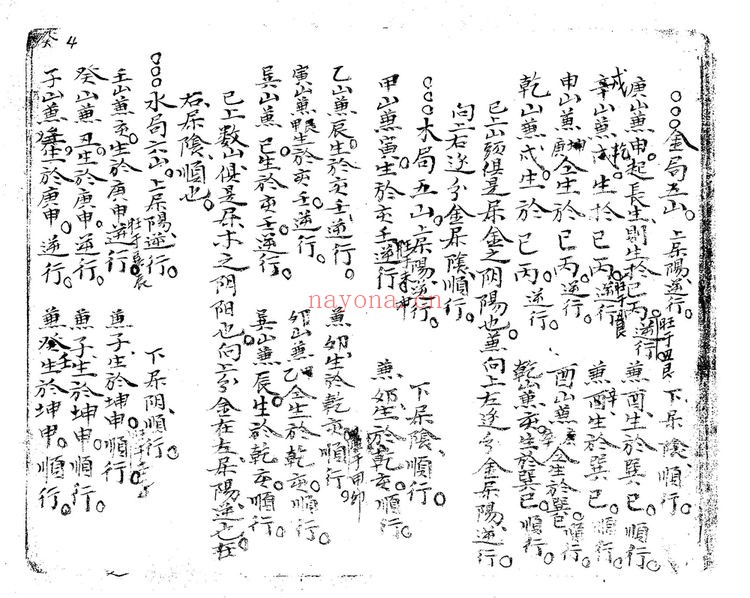 4
金局五山。上屬陽逆行。 下屬陰順行。
庚山兼申起長生則生於巳丙逆行 兼酉生於巽巳順行。
辛山兼戌生於巳丙逆行 兼酉生於巽巳順行。
申山兼庚坤全生於巳丙逆行。 酉山兼辛全生於巽巳順行。
乾山兼戌生於巳丙逆行。 乾山兼亥生於巽巳順行。
已上山頭俱是屬金之阴陽也。兼向上左逆分金屬陽逆行。
向上右逆分金屬陰順行。
木局五山。上屬陽逆行。 下屬陰順行。
甲山兼寅生於亥壬逆行 兼卯生於乾亥順行。
乙山兼辰生於亥壬逆行。 兼卯生於乾亥順行。
寅山兼甲艮生於亥壬逆行。 卯山兼乙全生於乾亥順行。
巽山兼巳生於亥壬逆行。 巽山兼辰生於乾亥順行。
已上数山俱是屬木之阴阳也。向上分金在左屬陽逆也在
右屬陰順也。
水局六山。上屬陽逆行。 下屬阴順行。
壬山兼亥生於庚申逆行 兼子生於坤申順行
癸山兼丑生於庚申逆行。 兼子生於坤申順行。
子山兼壬生於庚申逆行。 兼癸生於坤申順行。
nayona.cn